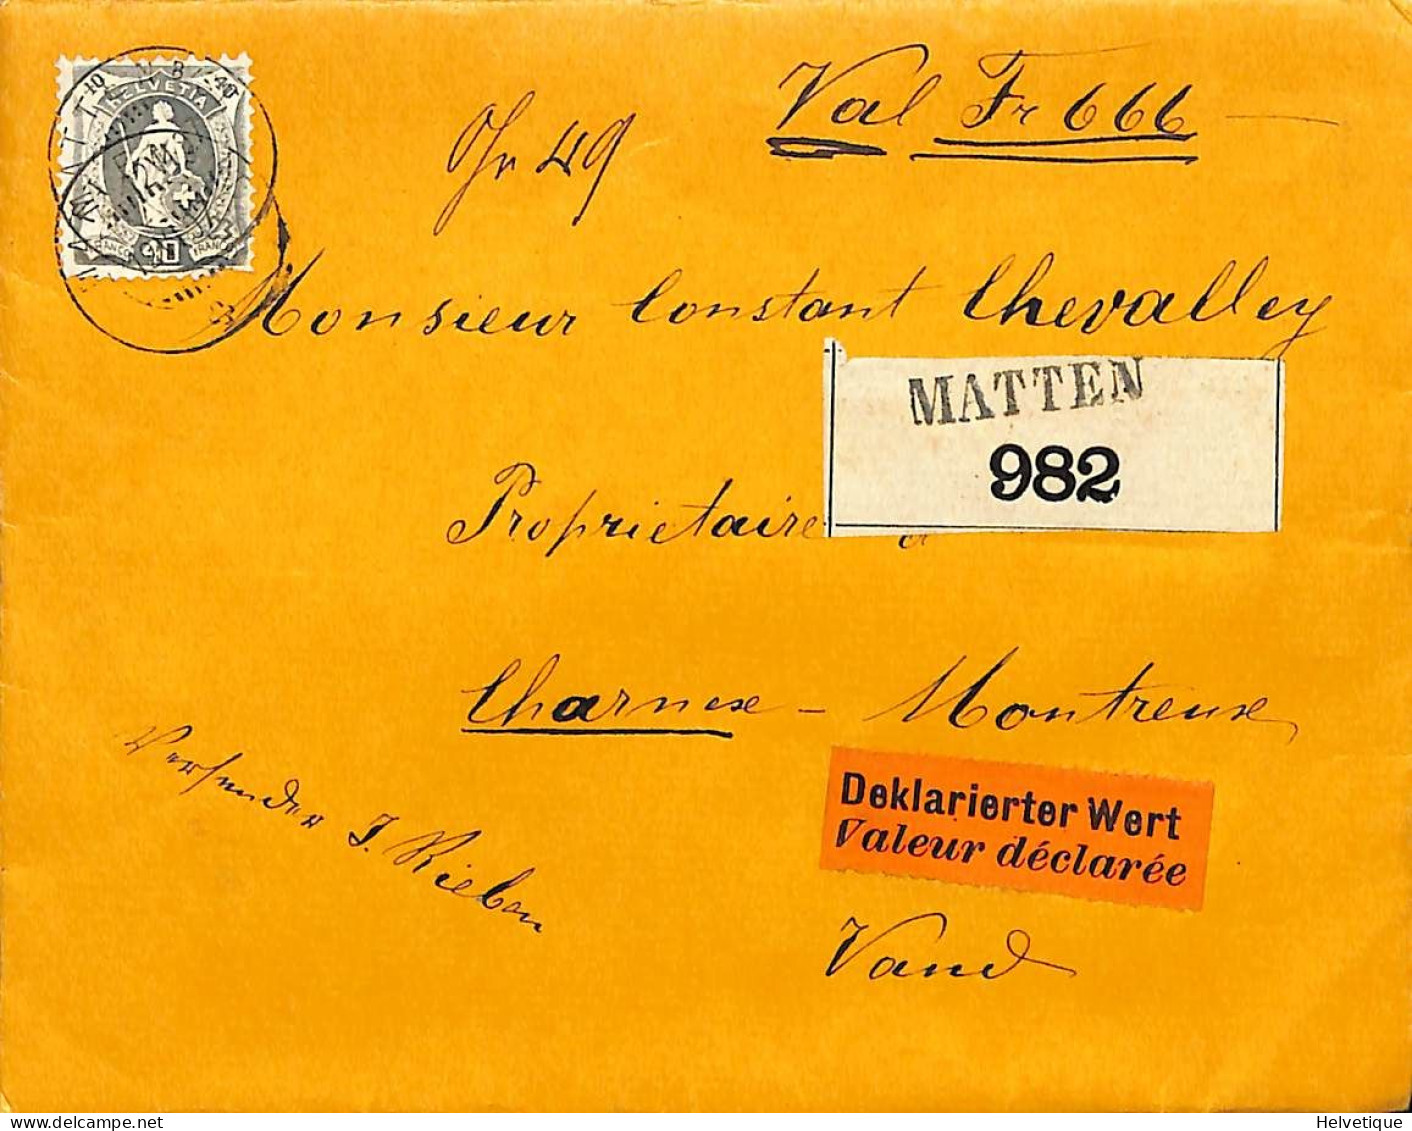 HELVETIA
40
Val Fr 666
Gr 49
Monsieur Constant Chevalley
MATTEN
982
Proprietaire à
Charnex - Montreux
Deklarierter Wert
Valeur déclarée
Versender J. Rieben
Vaud
Helvetique delcampe.net